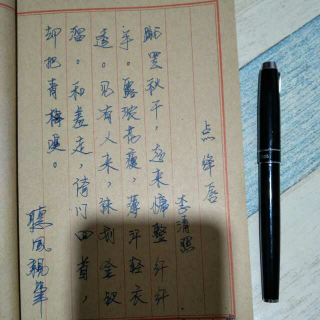 点绛唇
李清照
蹴罢秋千，起来慵整纤纤
手。露浓花瘦，薄汗轻衣
透。见有人来，袜刬金钗
溜。和羞走，倚门回首，
却把青梅嗅。
聽風親筆